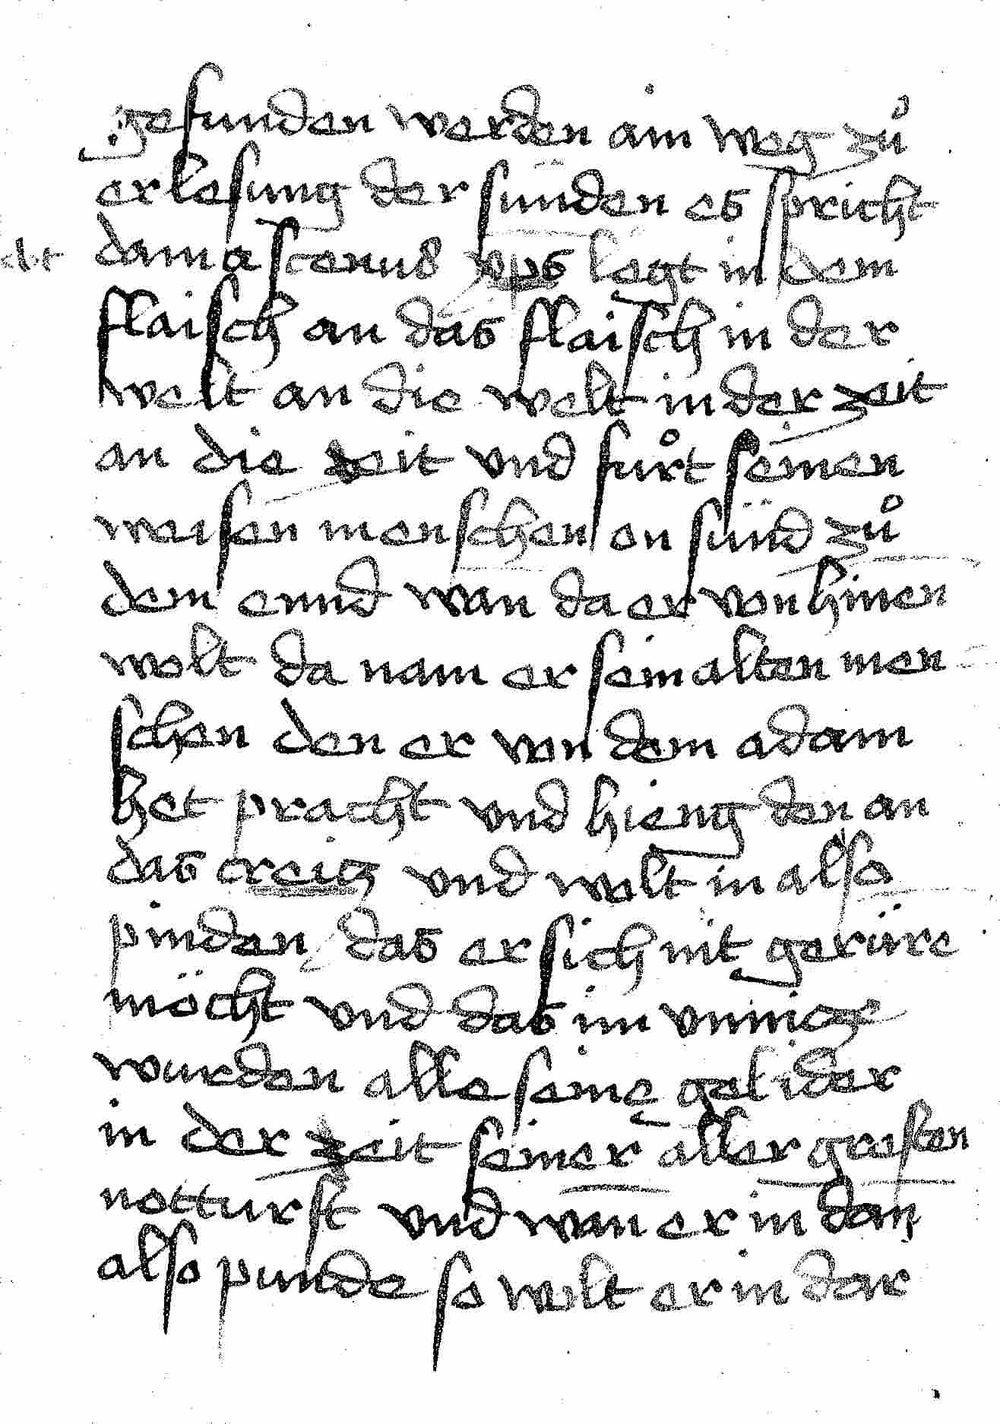 gefunden werden ain weg zů
erlesung der sünden es spricht
damascenus xp̄s legt in dem
flaisch an das flaisch in der
welt an die welt in der zeit
an die zeit und fůrt seinen
weisen menschen on sünd zů
dem ennd wan da er von hinen
wolt da nam er sein alten men
schen den er von dem adam
het pracht und hieng den an
das creitz und wolt in also
pinden das er sich nit gerüre
möcht und das im vnnicze
wurden alle seine gelider
in der zeit seiner aller grosten
notturft und wan er in dan
also punde so wolt er in dar